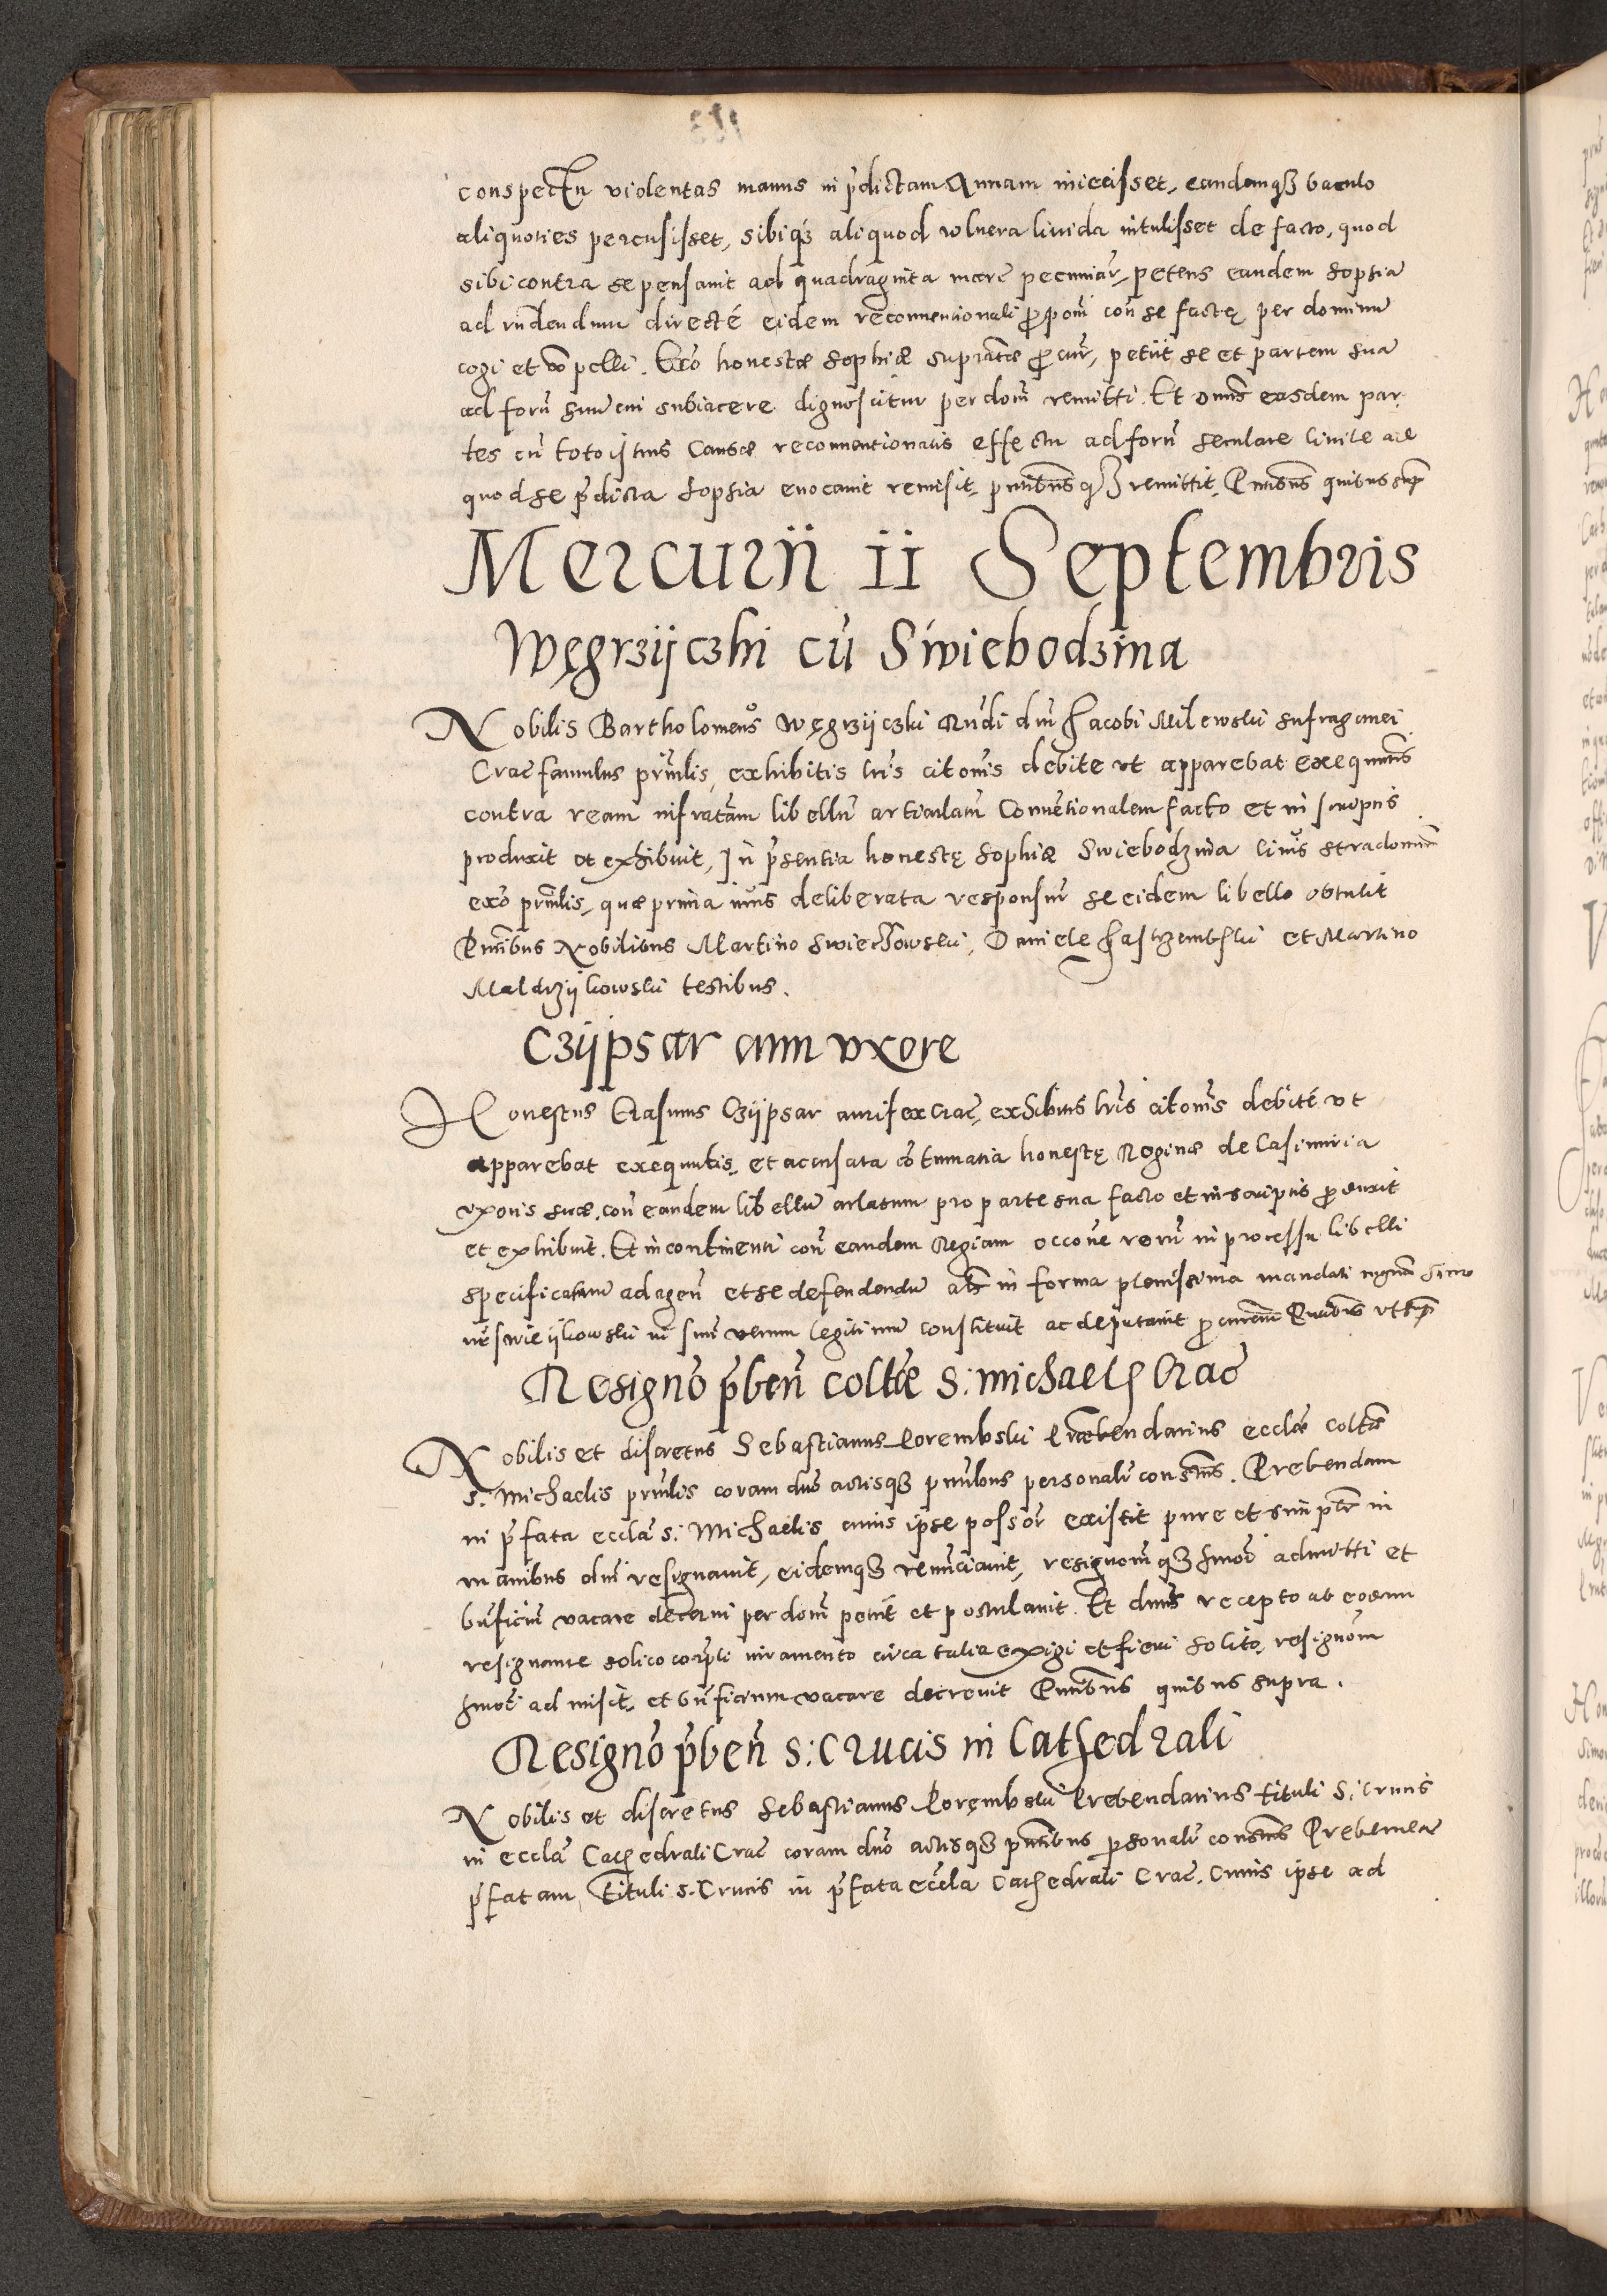 conspectu violentas manus in p̄dictam Annam iniecisset, eandemqꝫ baculo
aliquoties percusisset, sibiqꝫ aliquod vulnera liuida intulisset de facto, quod
sibi contra se pensauit ad quadraginta marc̄ pecuniar̄, petens eandem Sophia
ad rn̄dendum directé eidem reconuentionali ꝓpoñi coñ se factę per dominū
cogi et cōpelli. Ex̄o honestæ Sophiæ supra̅tæ ꝓcur̄, petiit se et partem sua
ad forū suū cui subiacere dignoscitur per dom̄ remitti. Et dnūs easdem par
tes cū toto istius Causæ reconuentionalis effectu ad forū seculare Ciuile a̅c
quod se p̄dicta Sophia euocauit remisit, pn̄tibus qꝫ remittit. Pn̄tibus quibus sup̄
Mercurii ii Septembris
Węgrzijczki cū Swiebodzina
Nobilis Bartholomeus Węgrzijczki Rn̄di dn̄i Jacobi Milewski sufraganei
Crac̄ famulus prn̄lis, exhibitis lrīs citonis debite vt apparebat exequutis
contra ream infra̅tam libellū articulatū Conuentionalem facto et in scriptis
produxit et exhibuit, In p̄sentia honestę Sophiæ Swiebodzina Ciuis Stradomn̄
ex̄o prn̄lis, quæ prima iuris deliberata responsur̄ se eidem libello obtulit
Pn̄tibus Nobilibus Martino Swiechowski, Daniele Jastrzembski et Martino
Maldrzijkowski testibus.
Czijpsar cum vxore
Honestus Erasmus Czijpsar aurifex Crac̄, exhibitis lrīs citonis debité vt
apparebat exequutis, et accusata cōtumatia honestę Reginæ de Casimiria
vxoris suæ, coñ eandem libellū arlatum pro parte sua facto et in scriptis ꝓduxit
et exhibuit. Et incontinenti coñ eandem Reginam occōne rerū in processu libelli
specificatarum ad agen̄ et se defendendū ab̄ in forma plenissima mandati Simo
nē swieijkowski in suū verum legitimū constituit ac deputauit ꝓcurem̄ Pn̄tibus vt sup̄
Resignō p̄ben̄ colltæ S: Michaelis Crac̄
Nobilis et discretus Sebastianus Porembski Præbendarius ecclæ coltæ
S. Michaelis prn̄lis coram dn̄s actisqꝫ pn̄tibus personalr̄ consts̄. Prebendam
in p̄fata eccl̄a S: Michaelis cuius ipse possor̄ existit pure et simpl̄r in
manibus dn̄i resignauit, eidemqꝫ renūciauit, resignom̄qꝫ hmōi admitti et
bn̄ficiū vacare decerni per dom̄ petiit et postulauit. Et dnūs recepto ab eodem
resignante solito corp̄li iuramento circa talia exigi et fieri solito, resignom̄
hmōi admisit, et bn̄ficium vacare decreuit Pn̄tibus quibus supra.
Resignō p̄ben̄ S: Crucis in Cathedrali
Nobilis et discretus Sebastianus Porębski Prebendarius tituli S: Crucis
in eccl̄a Cathedrali Crac̄ coram dn̄o actisqꝫ pn̄tibus ꝑsonalr̄ consts̄ Prebendā
p̄fatam, tituli S. Crucis in p̄fata eccl̄a Cathedrali Crac̄. Cuius ipse ad